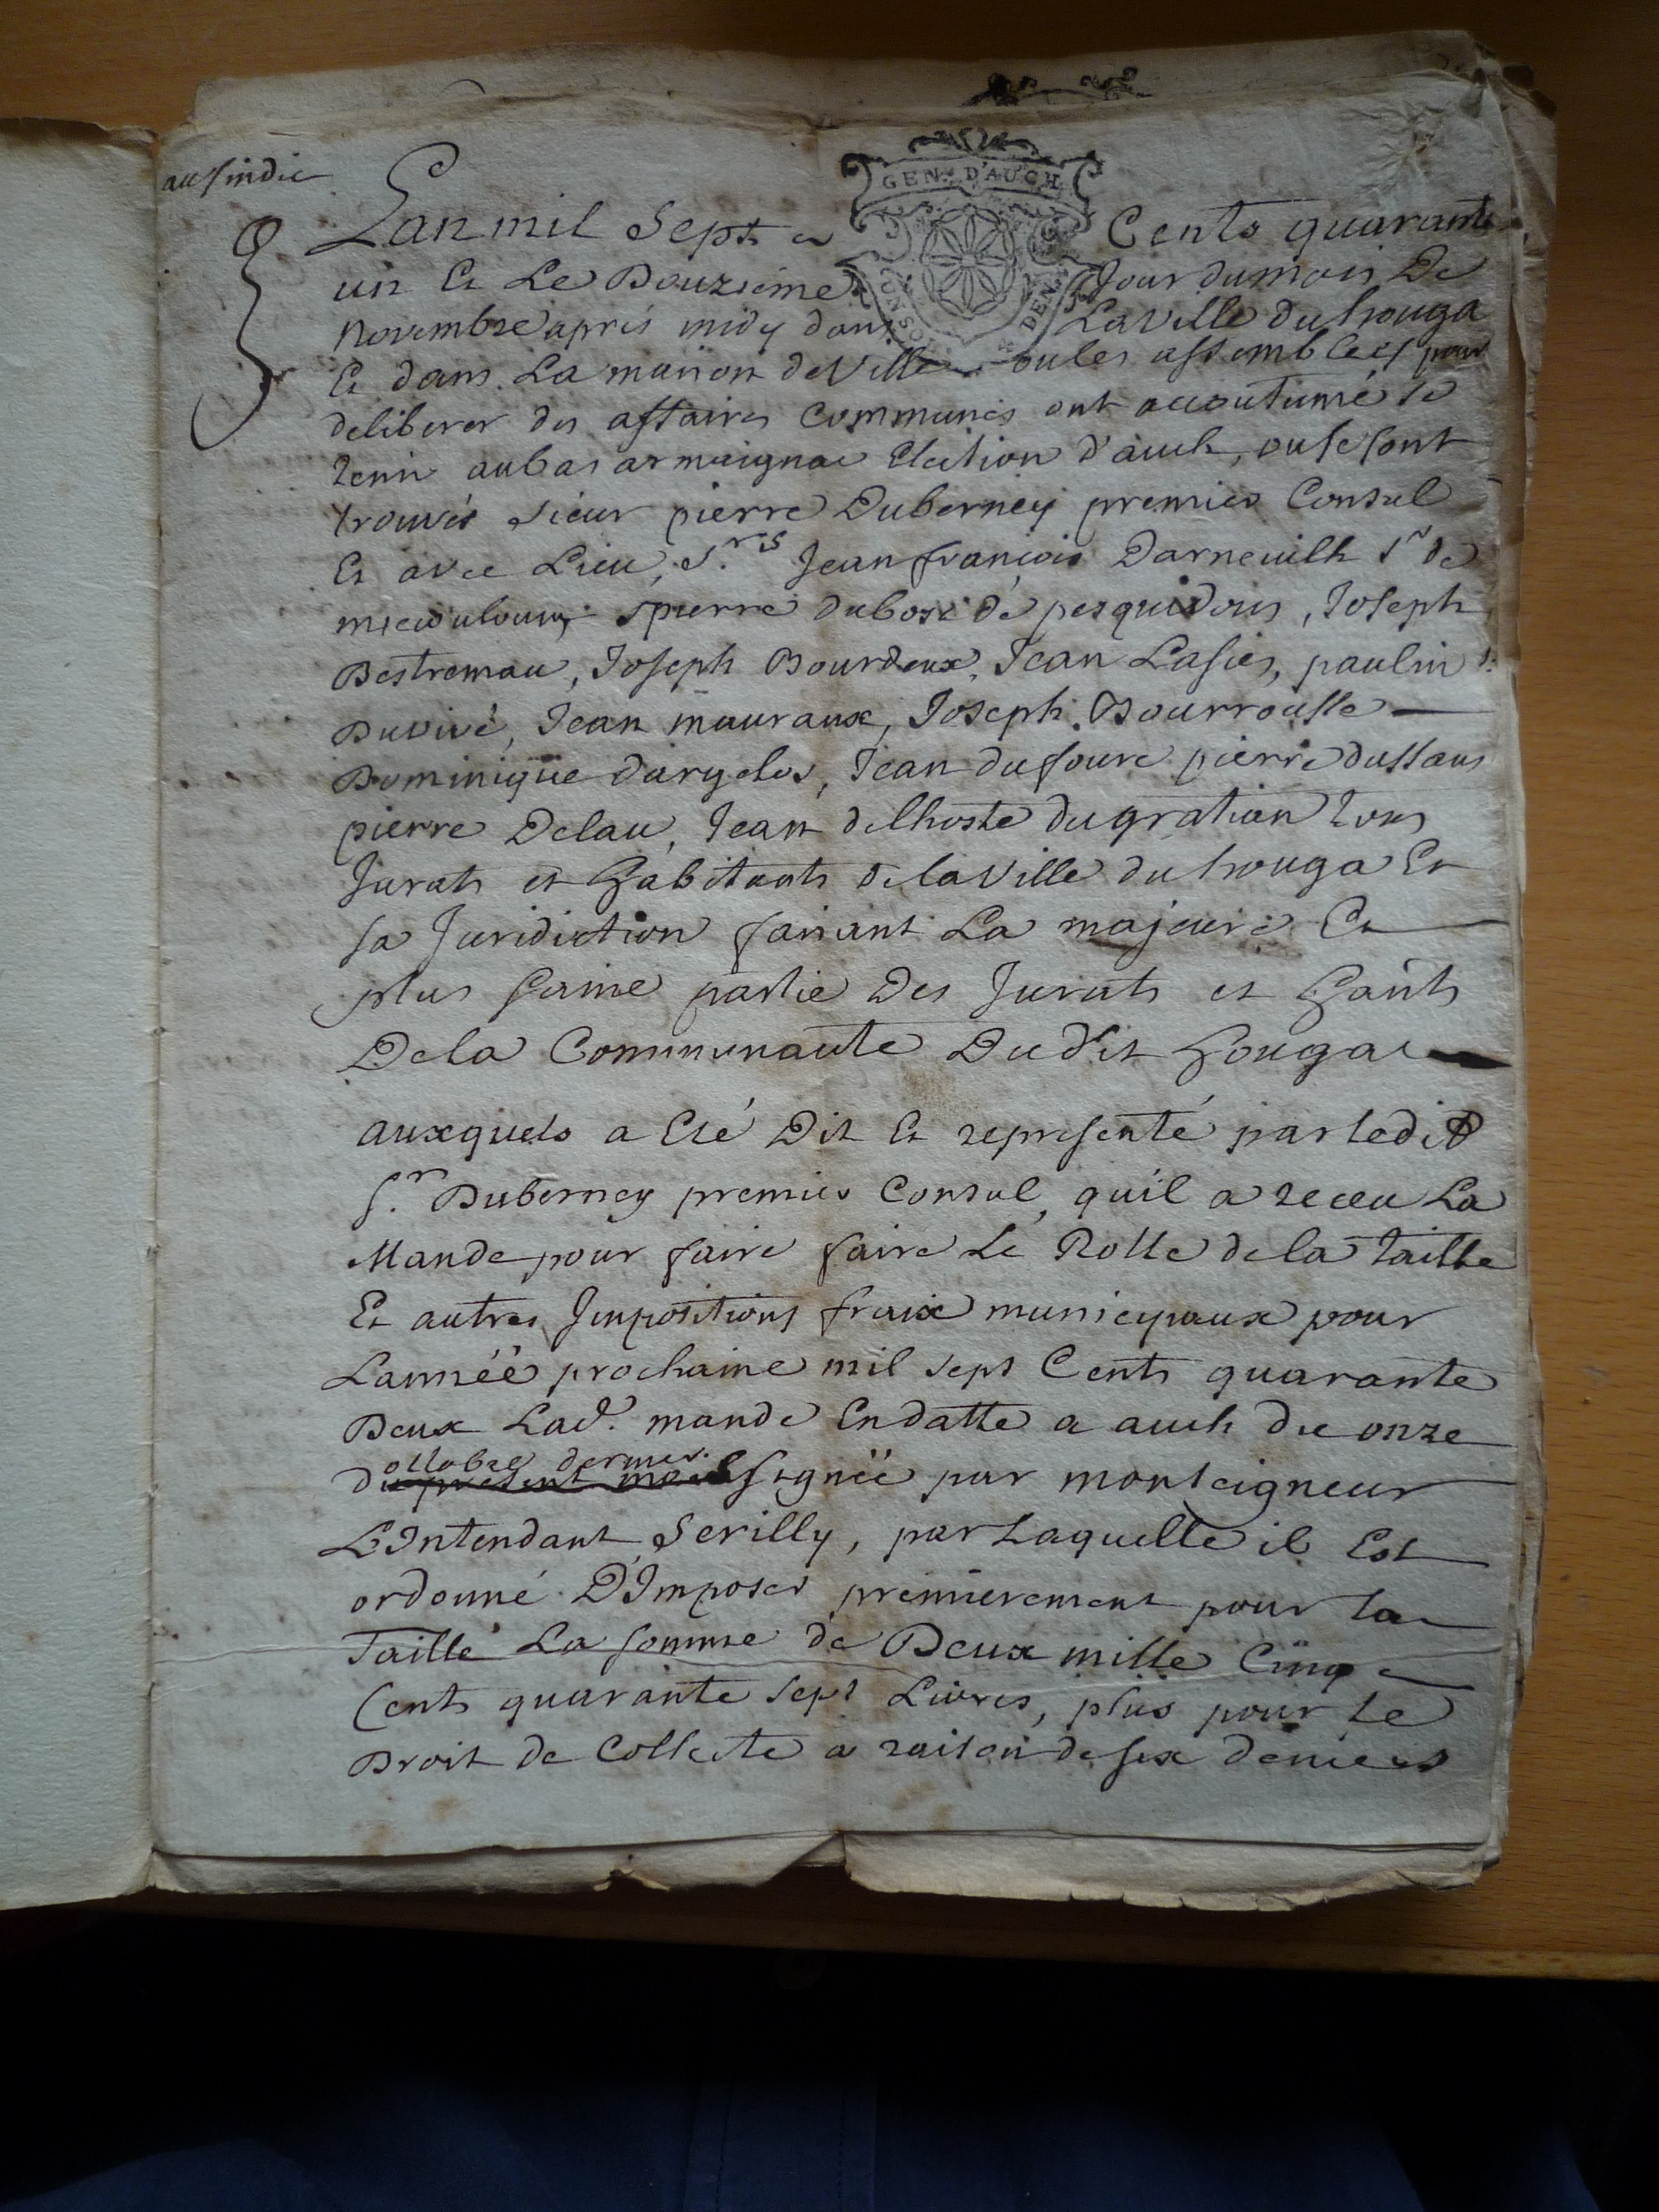 au sindic
GEN. D'AUCH
Lan mil Sept Cents quarante
un Et Le Douzieme Jour du mois De
novembre apres midy dans La Ville du houga
Et dans La maison de Ville ou les assemblées pour
deliberer des affaires Communes ont accoutumé se
tenir au bas armaignac Election d'auch, ou se sont
trouvés sieur pierre Duberney premier Consul
Et avec Lieu, S.rs Jean françois Darneuilh Sr de
pierre dubosc de pesquidous, Joseph
Bestremau, Joseph Bourdeux, Jean Lasies, paulin
Duvivé, Jean mauraux, Joseph Bourrousse
Dominique dargelos, Jean dufourc pierre dussans
pierre Delau, Jean delhoste du gratian tous
Jurats et habitants de la Ville du houga Et
sa Juridiction faisant La majeure Et
plus saine partie Des Jurats et hants
De la Communauté Dudit houga
auxquels a Eté Dit Et representé par ledit
S.r Duberney premier Consul, quil a receu La
Mande pour faire faire Le Rolle de la taille
Et autres Impositions fraix municipaux pour
Lannéé prochaine mil sept Cents quarante
Deux Lad. mande En datte a auch du onze
octobre dernier
du present mois signéé par monseigneur
L'Intendant Serilly, par Laquelle il Est
ordonné D'Imposer premierement pour la
Taille La somme de Deux mille Cinq
Cents quarante sept Livres, plus pour le
Droit de Collecte a raison de six deniers